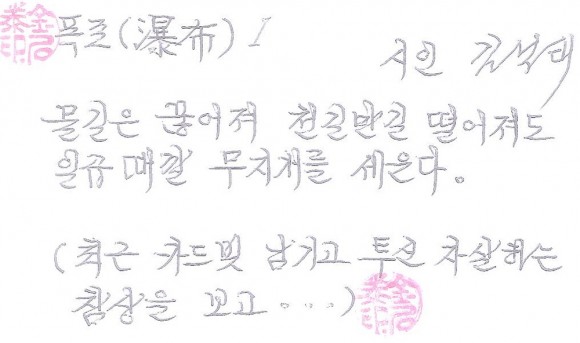 폭포(瀑布) I
시인 김석태
물길은 끊어져 천길만길 떨어져도
일곱때깔 무지개를 세운다.
(최근 카드빚 남기고 투신 자살하는
참상을 보고...)